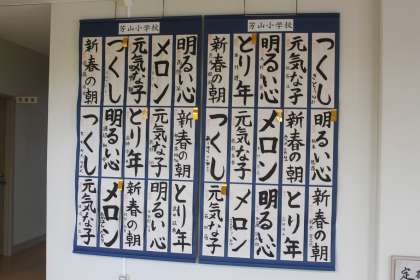 芳山小学校
明るい心
メロン
元気な子
つくし
新春の朝
とり年
新春の朝
元気な子
メロン
明るい心
つくし
とり年
明るい心
とり年
新春の朝
メロン
元気な子
芳山小学校
つくし
元気な子
明るい心
とり年
新春の朝
明るい心
新春の朝
メロン
元気な子
つくし
新春の朝
とり年
明るい心
メロン
元気な子